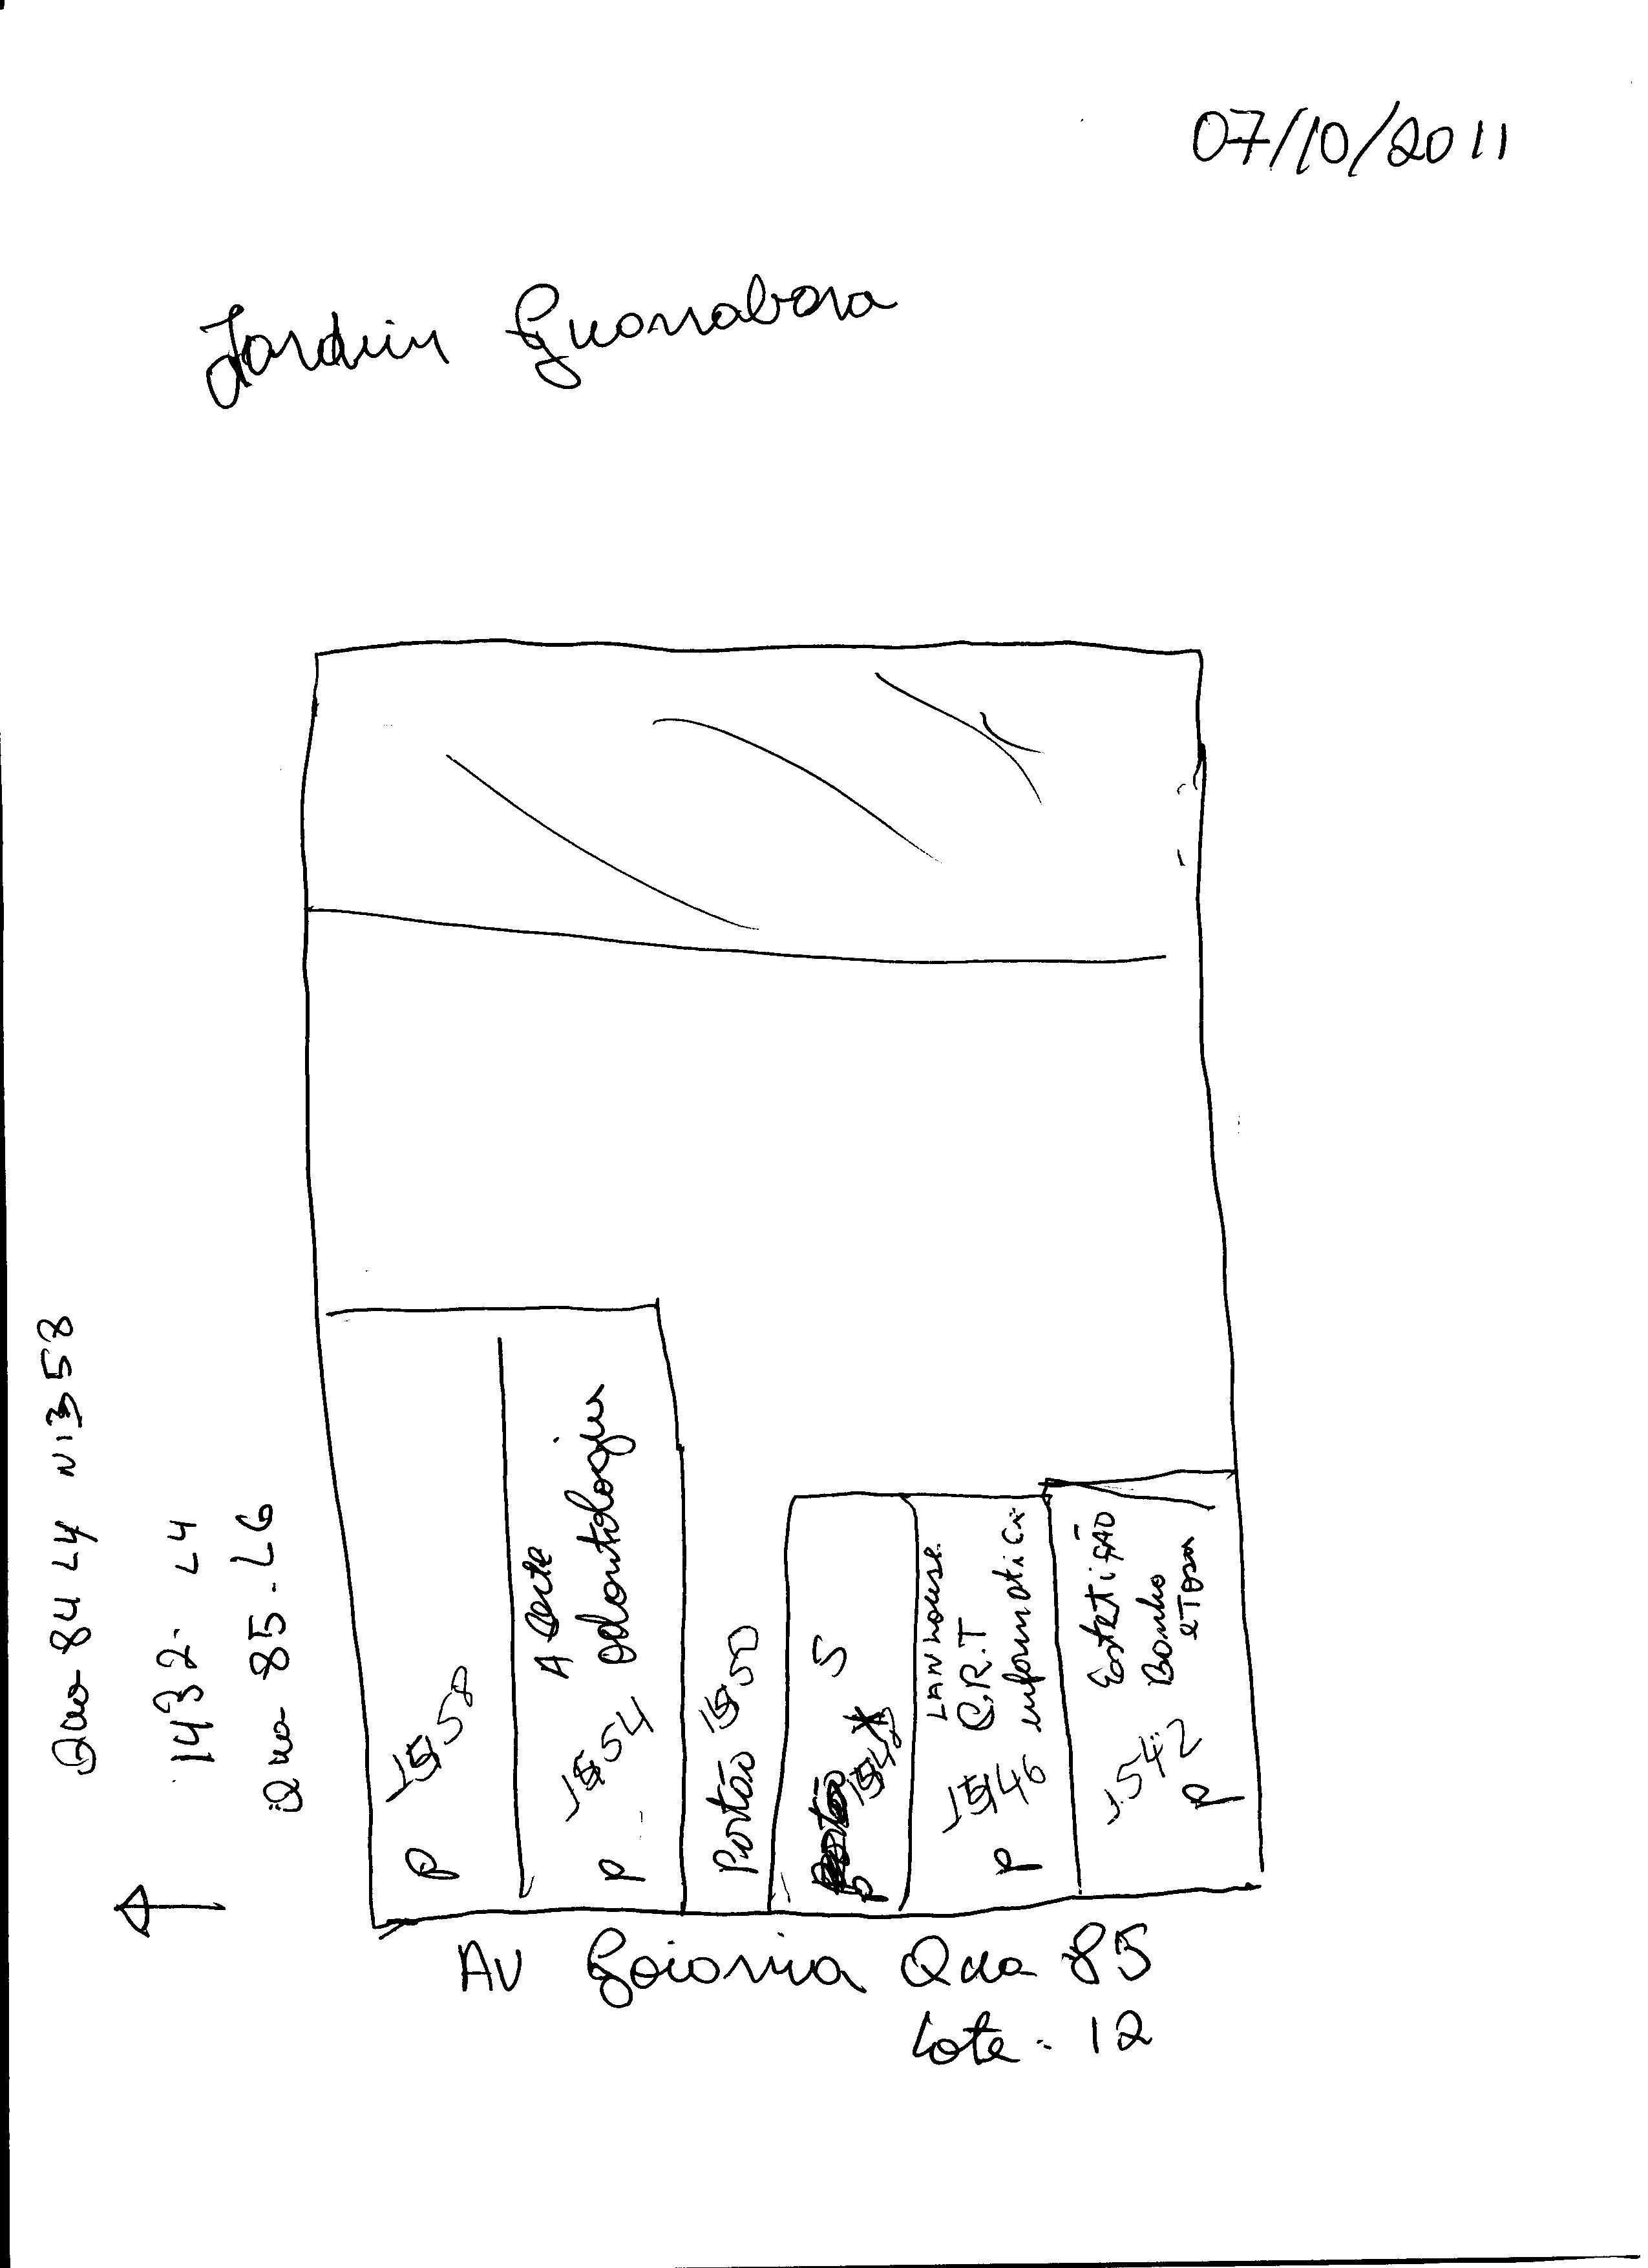 07/10/2011
Jardim Guanabara
Qua 84 L4 N 1358
1432 - L4
Qua 85 - L6
P 1558
Arte
Odontologia
P 1554
Portão 1550
P S
LAN house
C.R.T
informatica
P 1546
EstetiCÃO
Banho
e Tosa
1542
P
AV Goiania Qua 85
Lote - 12